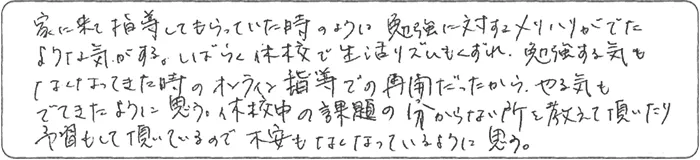 家に来て指導してもらっていた時のように勉強に対するメリハリがでた
ような気がする。しばらく休校で生活リズムもくずれ、勉強する気も
なくなってきた時のオンライン指導での再開だったから、やる気も
でてきたように思う。休校中の課題の分からない所を教えて頂いたり
予習もして頂いているので不安もなくなっているように思う。